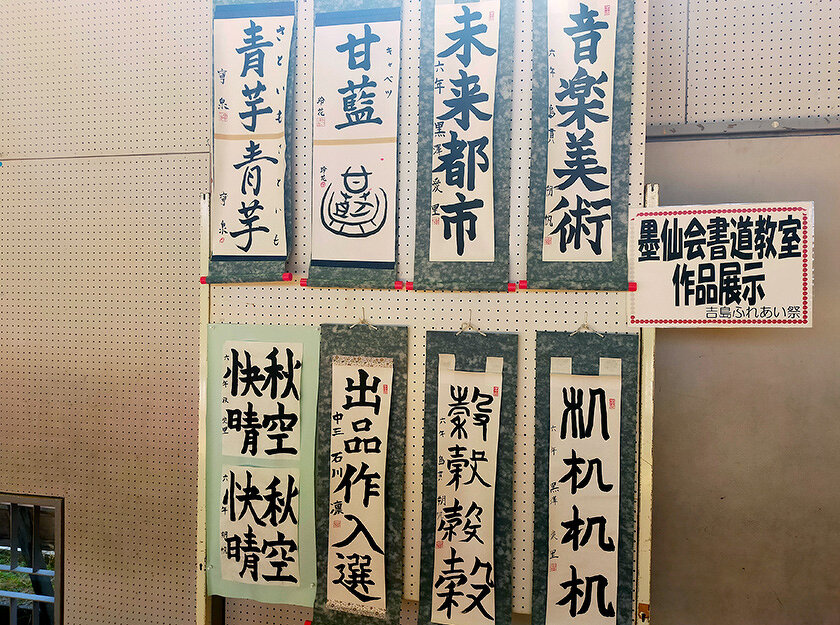 音楽美術
六年
未来都市
六年 黒澤 愛里
甘藍
キャベツ
甘藍
青芋青芋
さといもさといも
墨仙会書道教室
作品展示
吉島ふれあい祭
机机机机
六年 黒澤 愛里
穀穀穀穀
六年
出品作入選
中三 石川 凜
秋空
快晴
六年
秋空
快晴
六年